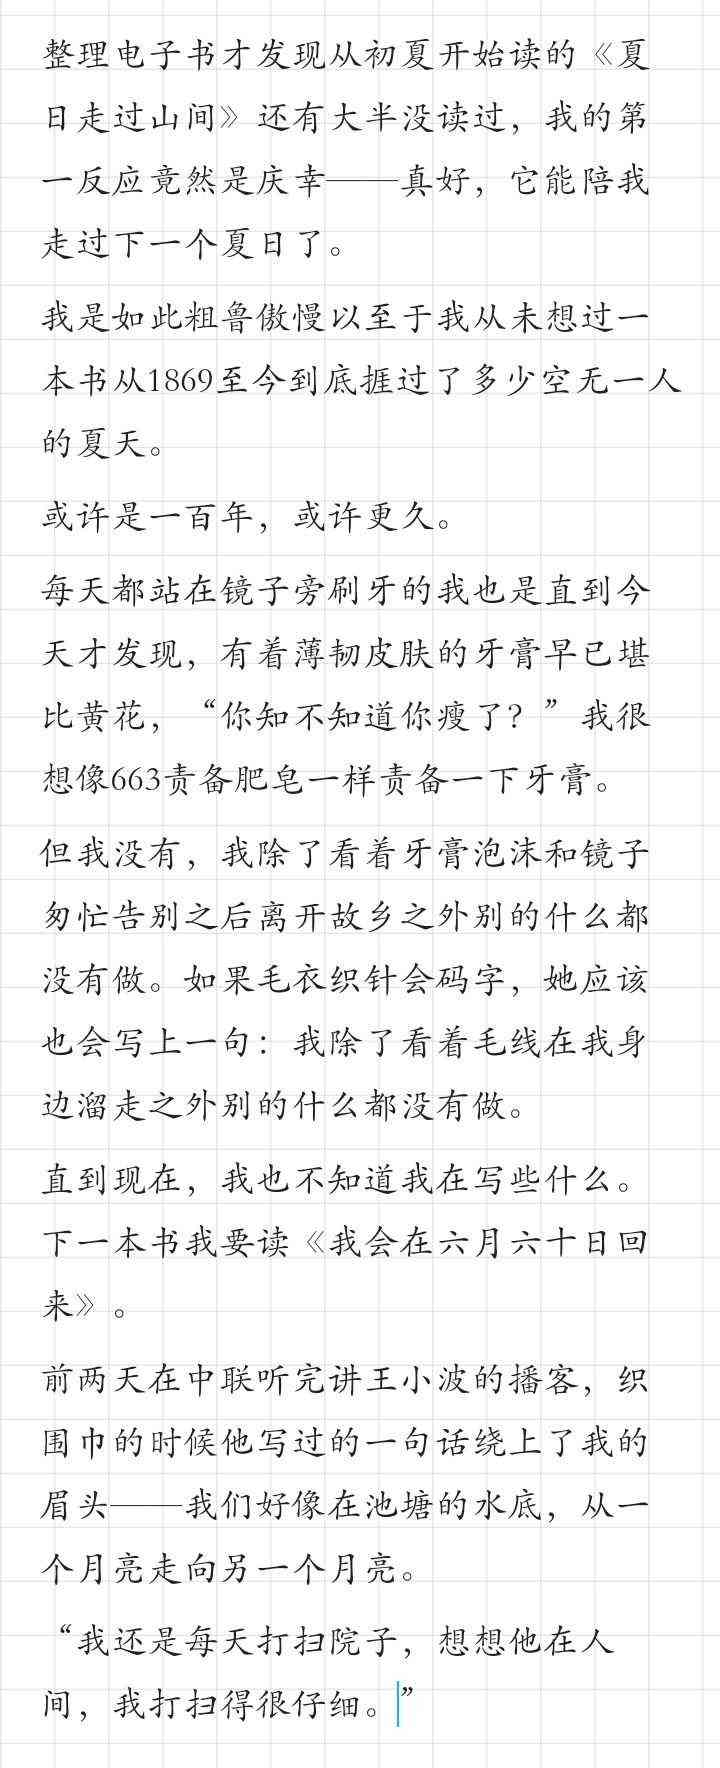 整理电子书才发现从初夏开始读的《夏
日走过山间》还有大半没读过，我的第
一反应竟然是庆幸——真好，它能陪我
走过下一个夏日了。
我是如此粗鲁傲慢以至于我从未想过一
本书从1869至今到底捱过了多少空无一人
的夏天。
或许是一百年，或许更久。
每天都站在镜子旁刷牙的我也是直到今
天才发现，有着薄韧皮肤的牙膏早已堪
比黄花，“你知不知道你瘦了？”我很
想像663责备肥皂一样责备一下牙膏。
但我没有，我除了看着牙膏泡沫和镜子
匆忙告别之后离开故乡之外别的什么都
没有做。如果毛衣织针会码字，她应该
也会写上一句：我除了看着毛线在我身
边溜走之外别的什么都没有做。
直到现在，我也不知道我在写些什么。
下一本书我要读《我会在六月六十日回
来》。
前两天在中联听完讲王小波的播客，织
围巾的时候他写过的一句话绕上了我的
眉头——我们好像在池塘的水底，从一
个月亮走向另一个月亮。
“我还是每天打扫院子，想想他在人
间，我打扫得很仔细。”